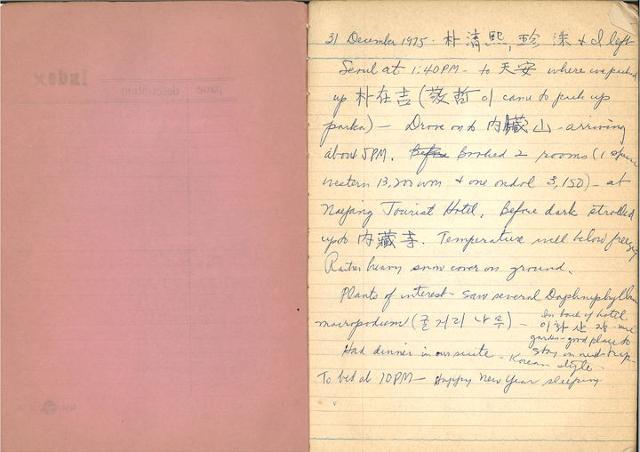 31 December 1975. 朴清熙, 珍 & I left
Seoul at 1:40PM - to 天安 where we picked
up 朴在吉 (敬哲이 came to pick up
parka) - Drove on to 內臟山 - arriving
about 5PM. Before Booked 2 rooms (1
western 13,200 won & one ondol 3,150) - at
Naejang Tourist Hotel. Before dark strolled
up to 內藏寺. Temperature well below freezing
Rather heavy snow cover on ground.
Plants of interest - saw several Daphniphyllum
macropodum (굴거리 나무) -
In back of hotel
garden - good place to
stay on next trip -
Had dinner in our suite - Korean style.
To bed at 10PM - Happy New Year sleeping
Index
page
description